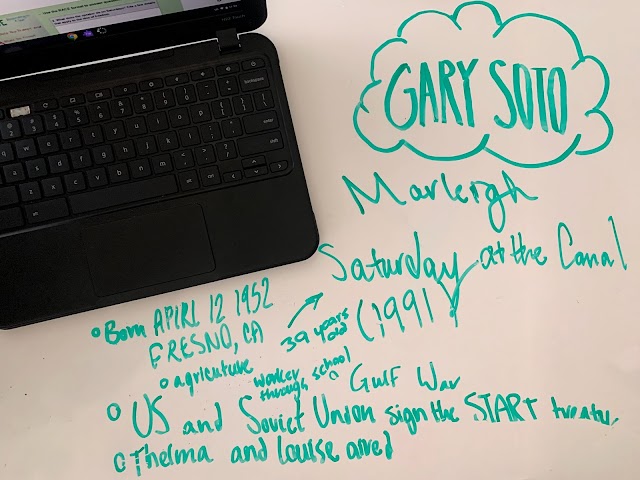 GARY SOTO
Marleigh
Saturday at the Canal
(1991)
39 years old
Born APIRL 12 1952
FRESNO, CA
agriculture
worker through school
Gulf War
US and Soviet Union sign the START
Thelma and Louise aired